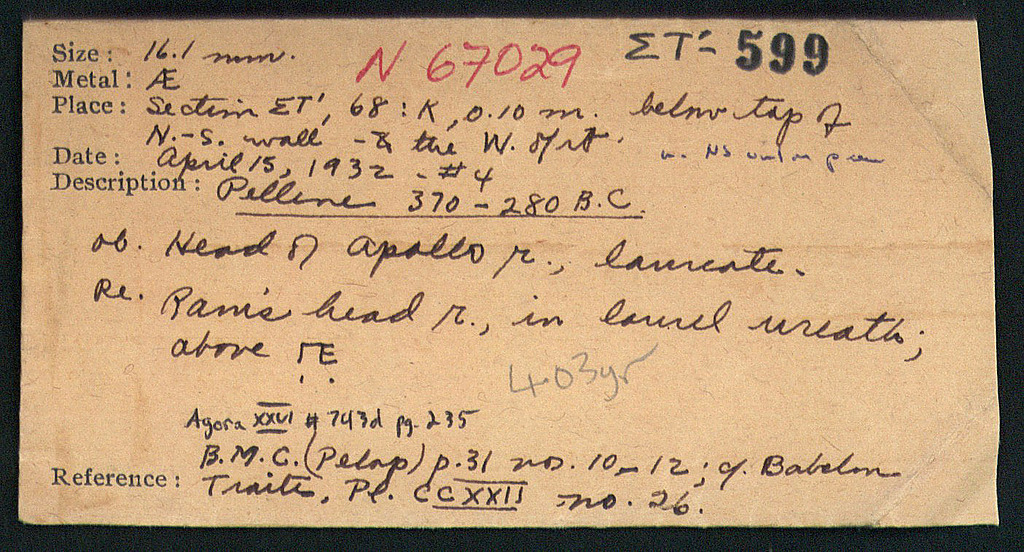 N 67029
ΣΤ'- 599
Size: 16.1 mm.
Metal: Æ
Place: Section ΣΤ', 68 : K, 0.10 m. below top of
N.-S. wall - to the W. of it.
Date: April 15, 1932 - #4
Description: Pellene 370 - 280 B.C.
ob. Head of Apollo r., laureate.
Re. Ram's head r., in laurel wreath;
above ΓΕ
4.03gr
Agora XXVI # 743d pg. 235
B.M.C. (Pelop) p.31 nos. 10-12; cf. Babelon
Reference: Traité, Pl. CCXXII no. 26.